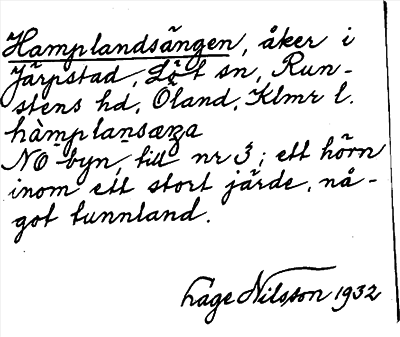 Hamplandsängen, åker i
Järpstad, Löt sn, Run-
stens hd, Öland, Klmr l.
hàmplansæŋa
NO byn, till nr 3; ett hörn
inom ett stort järde, nå-
got tunnland.
Låge Nilsson 1932